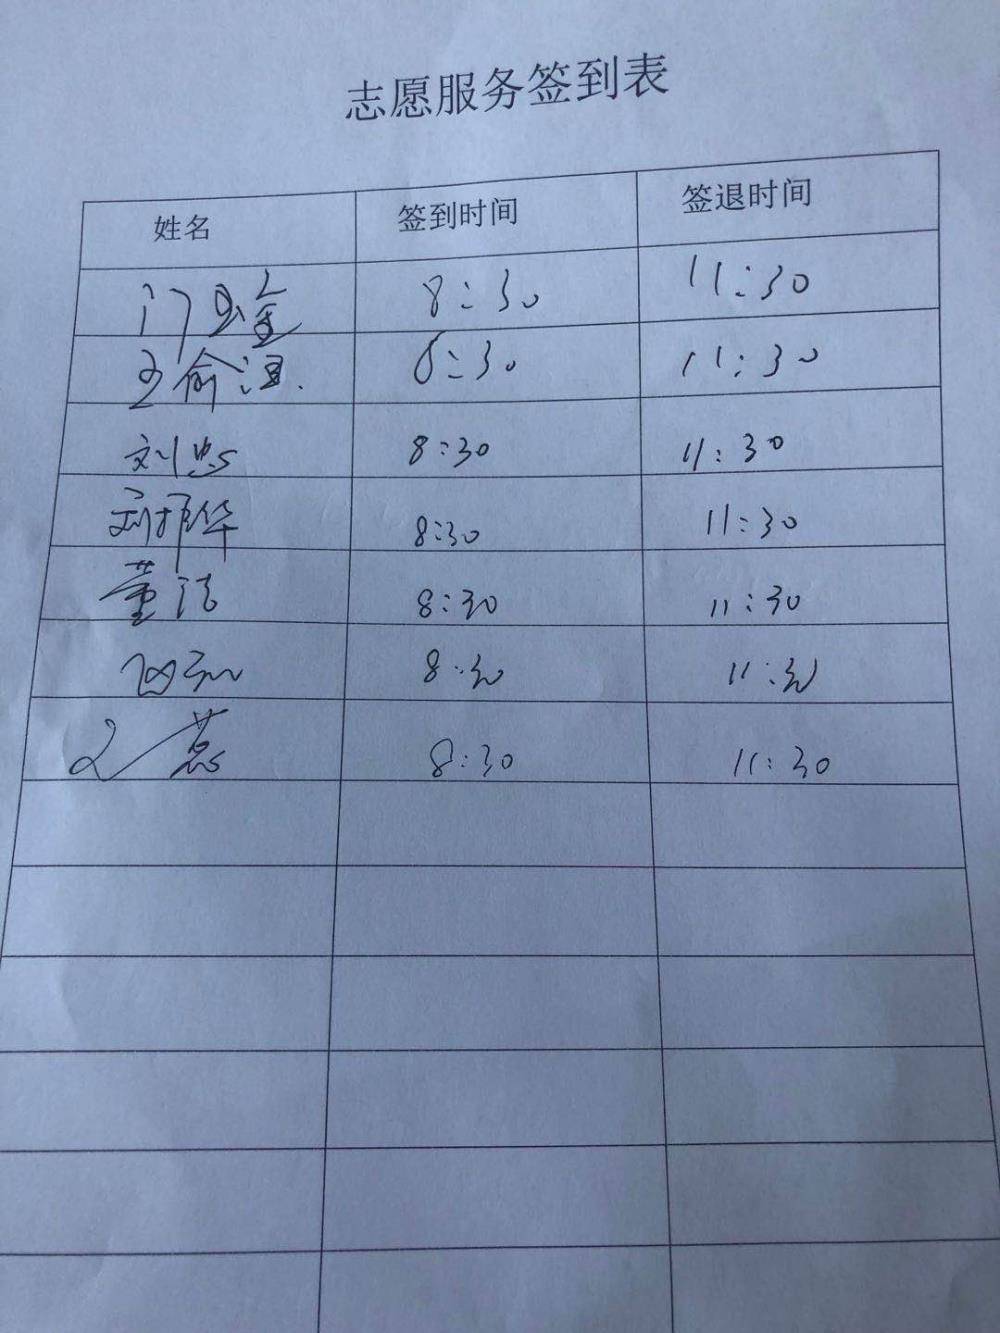 志愿服务签到表
姓名 签到时间 签退时间
8:30 11:30
8:30 11:30
刘忠 8:30 11:30
刘振华 8:30 11:30
董洁 8:30 11:30
8:30 11:30
8:30 11:30